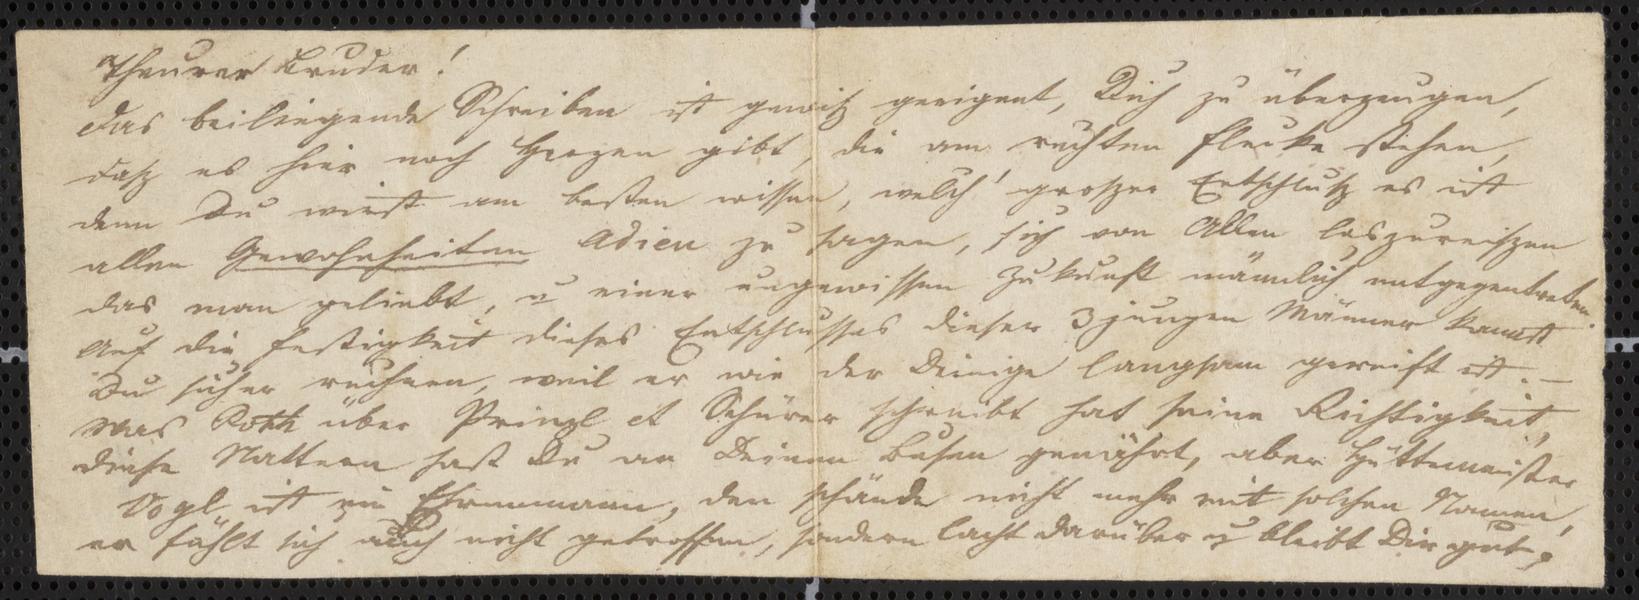 Theurer Bruder!
das beiliegende Schreiben ist gewiß geeignet, Dich zu überzeugen,
daß es hier noch Herzen gibt, die am rechten Flecke stehen,
denn Du wirst am besten wissen, welch' großer Entschluß es ist
allen Gewohnheiten Adieu zu sagen, sich von Allen loszureißen
das man geliebt, u einer ungewissen Zukunft männlich entgegentreten.
Auf die Festigkeit dieses Entschlusses dieser 3 jungen Männer kannst
Du sicher rechnen, weil er wie der Deinige langsam gereift ist. –
Was Roth über Prinzl et Schürer schreibt hat seine Richtigkeit,
diese Nattern hast Du an Deinem Busen genährt, aber Hüttenmeister
Vogl ist ein Ehrenmann, den schände nicht mehr mit solchen Namen,
er fühlt sich auch nicht getroffen, sondern lacht darüber u bleibt Dir gut;